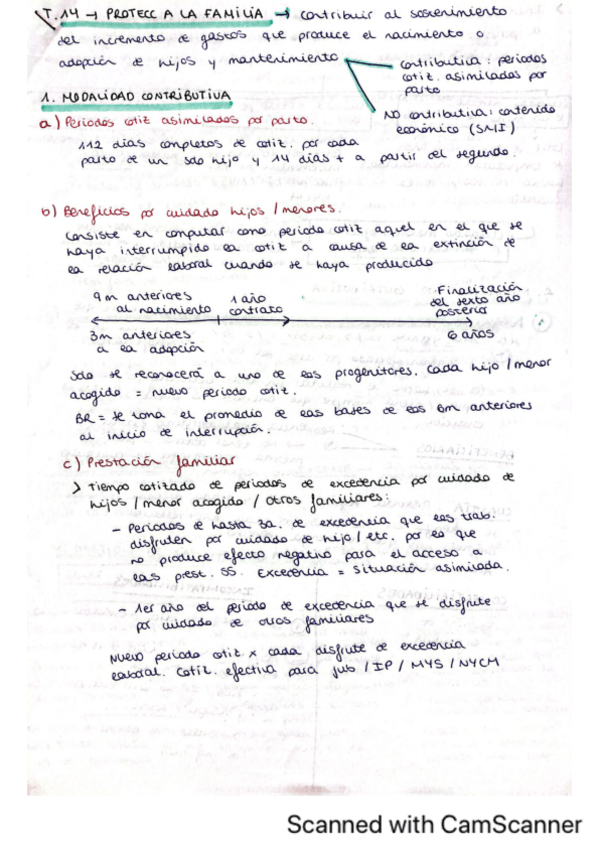 T.14 → PROTECC A LA FAMILIA → contribuir al sostenimiento
del incremento de gastos que produce el nacimiento o
adopción de hijos y mantenimiento
contributiva: periodos
cotiz. asimilados por
parto
NO contributiva: contenido
económico (SMI)
1. MODALIDAD CONTRIBUTIVA
a) Periodos cotiz asimilados por parto.
112 días completos de cotiz. por cada
parto de un solo hijo y 14 días + a partir del segundo.
b) Beneficios por cuidado hijos / menores.
Consiste en computar como periodo cotiz aquel en el que se
haya interrumpido la cotiz a causa de la extinción de
la relación laboral cuando se haya producido
9m anteriores
al nacimiento
1 año
contrato
Finalización
del sexto año
posterior
3m anteriores
a la adopción
6 años
Solo se reconocerá a uno de los progenitores. Cada hijo / menor
acogido = nuevo periodo cotiz.
BR = se toma el promedio de las bases de los 6m anteriores
al inicio de interrupción.
c) Prestación familiar
> Tiempo cotizado de periodos de excedencia por cuidado de
hijos / menor acogido / otros familiares:
- Periodos de hasta 3a. de excedencia que los trab.
disfruten por cuidado de hijo / etc. por lo que
no produce efecto negativo para el acceso a
las prest. SS. Excedencia = situación asimilada.
- 1er año del periodo de excedencia que se disfrute
por cuidado de otros familiares
Nuevo periodo cotiz x cada disfrute de excedencia
laboral. Cotiz. efectiva para jub / IP / MYS / NYCM
Scanned with CamScanner